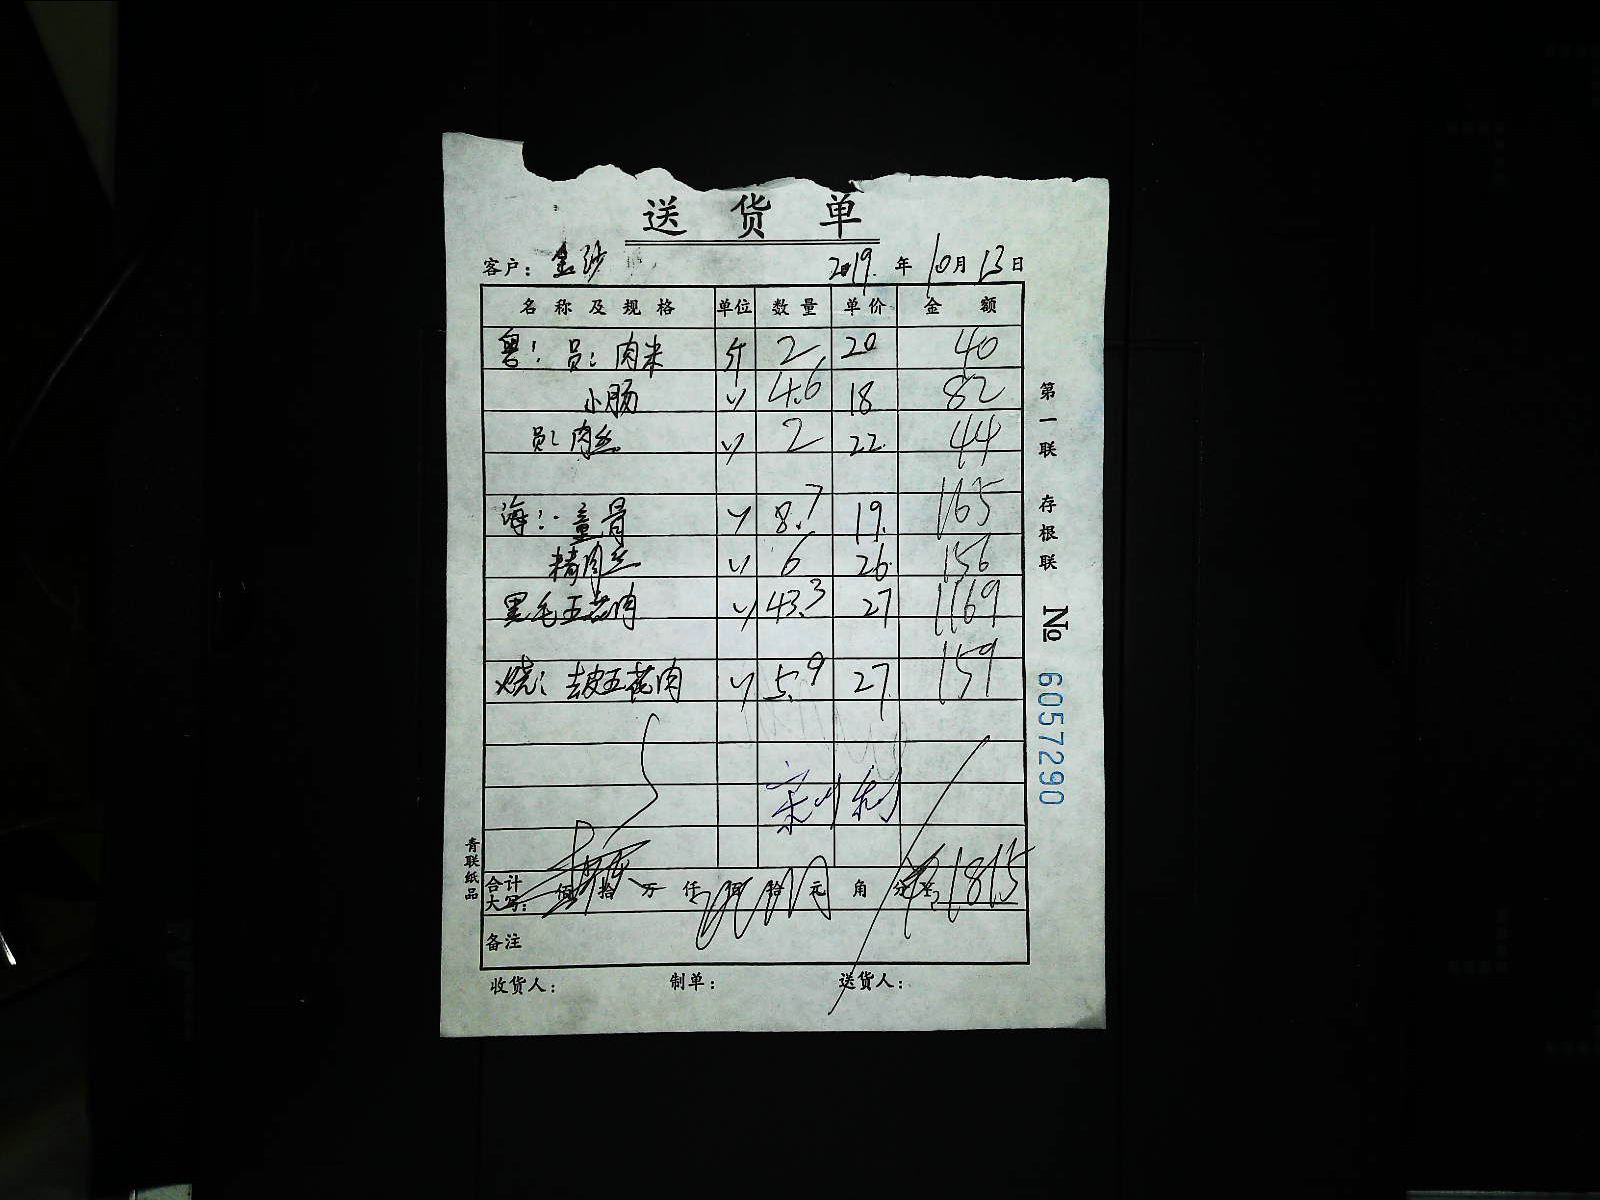 送货单
客户: 金沙 2019. 年 10月 13日
名称及规格 单位 数量 单价 金额
粤: 员: 肉米 斤 2 20 40
小肠 〃 4.6 18 82
员: 肉丝 〃 2 22 44
海: 童骨 〃 8.7 19 165
精肉丝 〃 6 26 156
黑毛五花肉 〃 43.3 27 1169
烧: 去皮五花肉 〃 5.9 27 159
合计大写: 佰 拾 万 仟 佰 拾 元 角 分 1815
备注
收货人: 制单: 送货人:
第一联 存根联 № 6057290
青联纸品